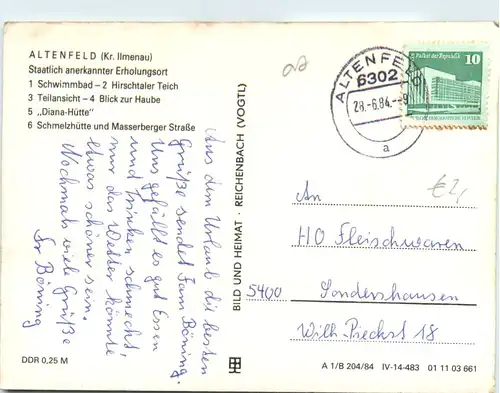 ALTENFELD (Kr. Ilmenau)
Staatlich anerkannter Erholungsort
1 Schwimmbad – 2 Hirschtaler Teich
3 Teilansicht – 4 Blick zur Haube
5 „Diana-Hütte"
6 Schmelzhütte und Masserberger Straße
Aus dem Urlaub die besten
Grüße sendet Fam Böning.
Uns gefällt es gut Essen
und trinken schmeckt,
nur das Wetter könnte
etwas schöner sein.
Nochmals viele Grüße
Fr Böning
DDR 0,25 M
BILD UND HEIMAT · REICHENBACH (VOGTL)
ALTENFELD
6302
28.-6.84.--9
a
Palast der Republik
10
€2,
An
HO Fleischwaren
5400 Sondershausen
Wilh. Pieckst 18
A 1/B 204/84 IV-14-483 01 11 03 661